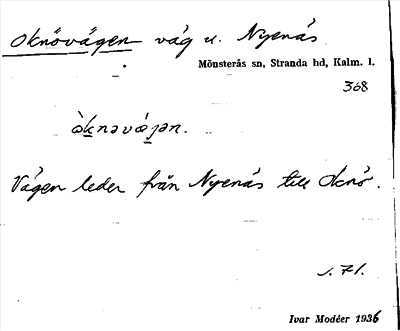 Oknövägen väg u. Nyenäs
Mönsterås sn, Stranda hd, Kalm. l.
368
Vägen leder från Nyenäs till Oknö.
s. 71.
Ivar Modéer 1936